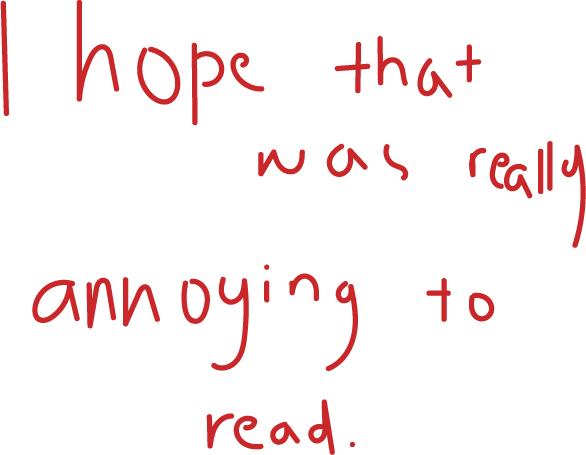 I hope that
was really
annoying to
read.